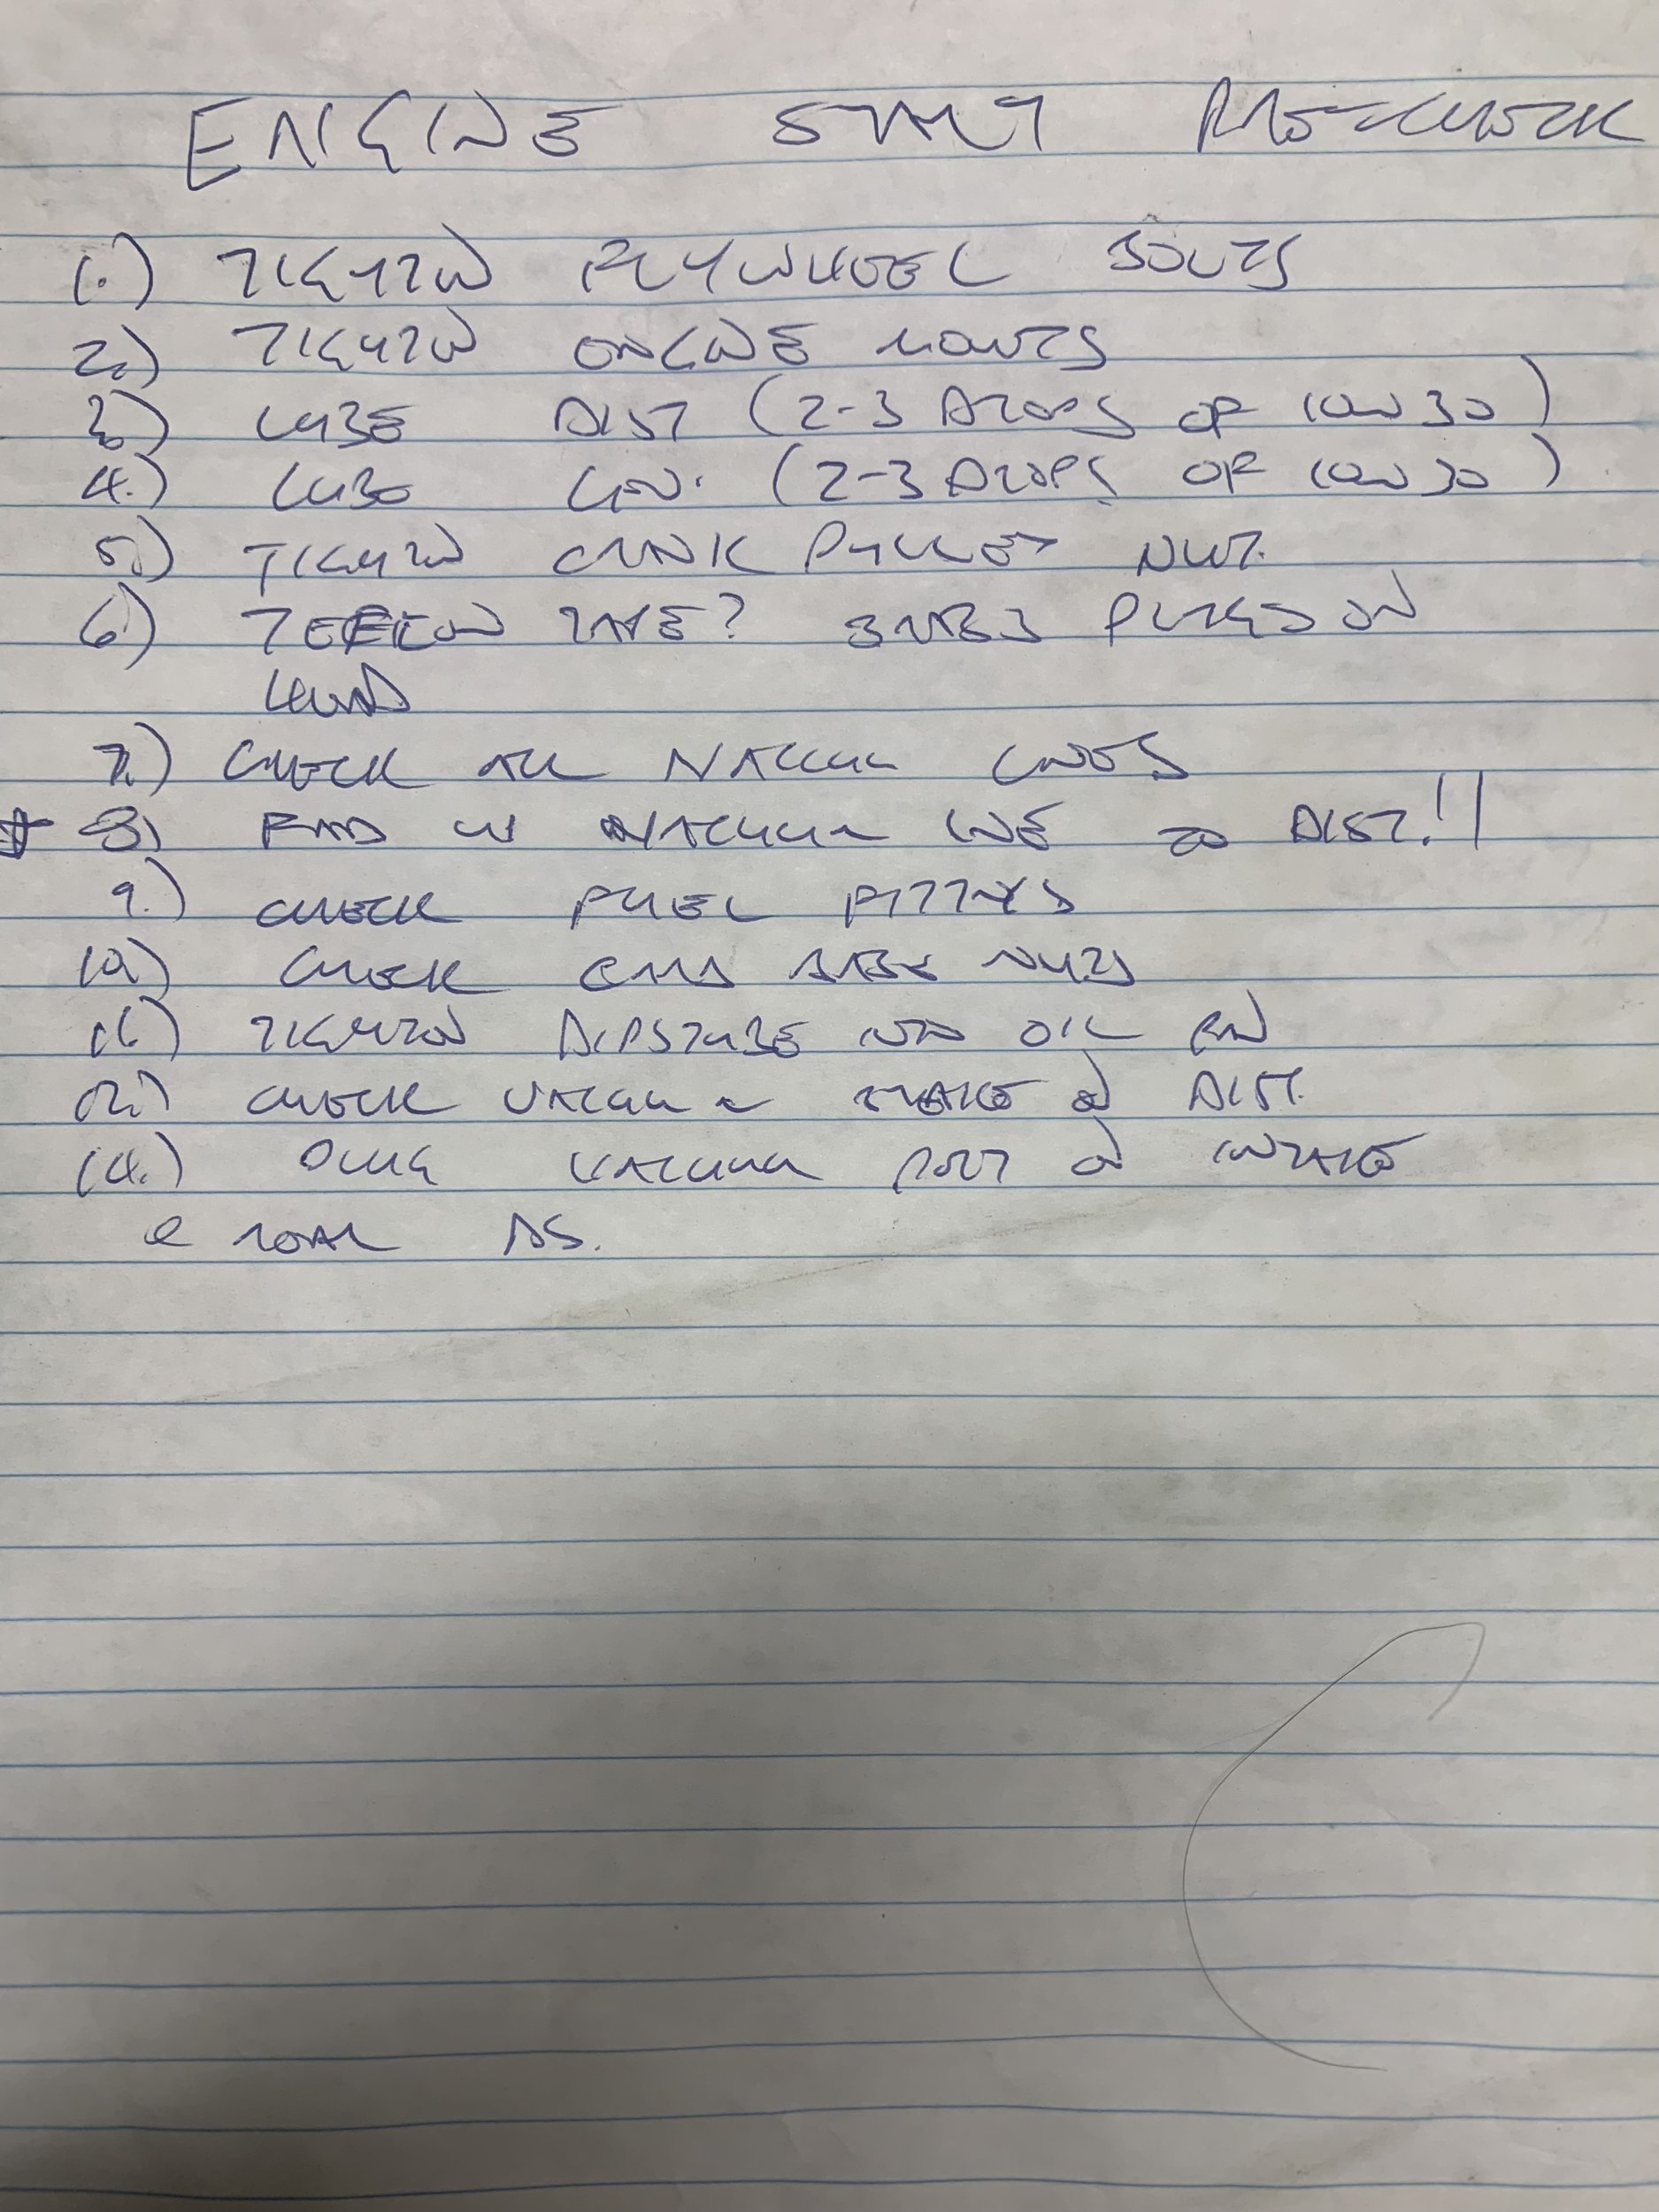 ENGINE START PRE-CHECK
1.) TIGHTEN FLYWHEEL BOLTS
2.) TIGHTEN ENGINE MOUNTS
3.) LUBE DIST (2-3 DROPS OF 10W30)
4.) LUBE GEN. (2-3 DROPS OF 10W30)
5.) TIGHTEN CRANK PULLEY NUT.
6.) TEFLON TAPE? BARBS PLUGS ON
HEAD
7.) CHECK ALL VACUUM LINES
8) VACUUM LINE TO DIST.!!
9.) CHECK FUEL FITTINGS
10.) CHECK CARB BASE NUTS
11.) TIGHTEN DIPSTUBE INTO OIL PAN
12.) CHECK VACUUM INTAKE @ DIST.
14.) PLUG VACUUM PORT ON INTAKE
@ REAR DS.